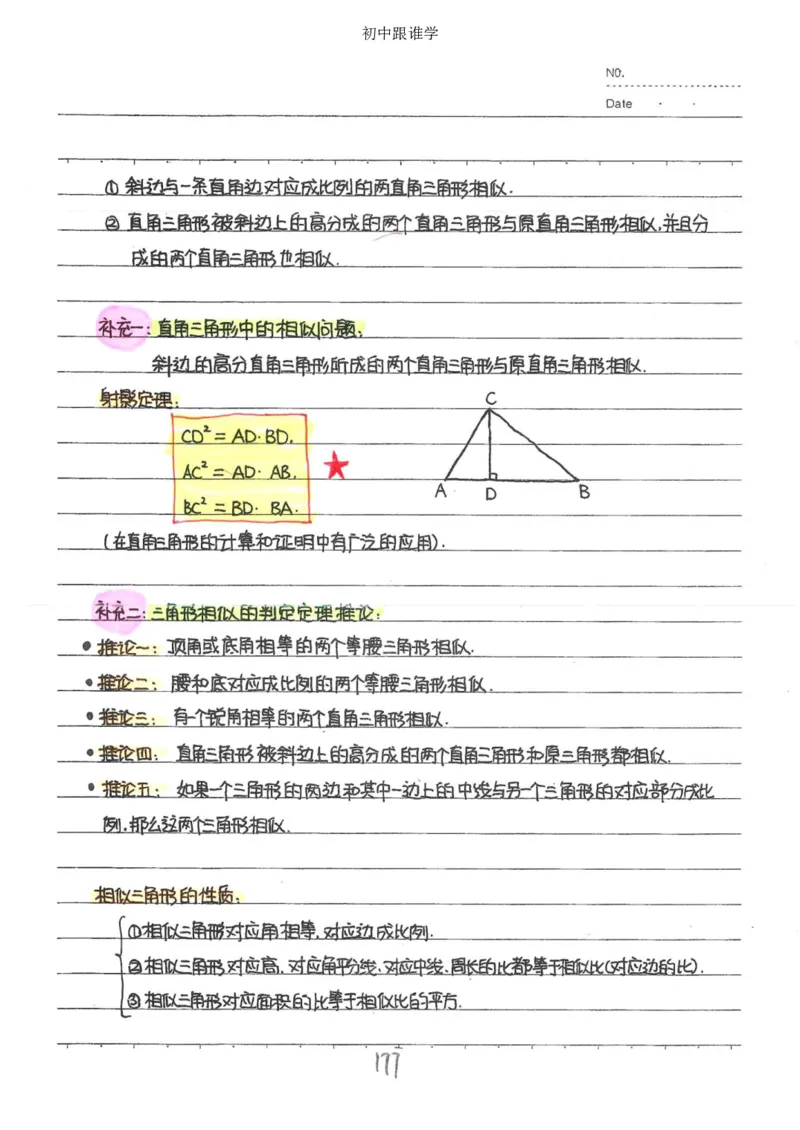 初中跟谁学
NO.
Date
① 斜边与一条直角边对应成比例的两直角三角形相似.
② 直角三角形被斜边上的高分成的两个直角三角形与原直角三角形相似,并且分
成的两个直角三角形也相似.
补充一:直角三角形中的相似问题:
斜边的高分直角三角形所成的两个直角三角形与原直角三角形相似.
射影定理:
CD²=AD·BD.
AC²=AD·AB.
BC²=BD·BA.
C
A
D
B
(在直角三角形的计算和证明中有广泛的应用).
补充二:三角形相似的判定定理推论:
• 推论一:顶角或底角相等的两个等腰三角形相似.
• 推论二:腰和底对应成比例的两个等腰三角形相似.
• 推论三:有一个锐角相等的两个直角三角形相似.
• 推论四:直角三角形被斜边上的高分成的两个直角三角形和原三角形都相似.
• 推论五:如果一个三角形的两边和其中一边上的中线与另一个三角形的对应部分成比
例,那么这两个三角形相似.
相似三角形的性质:
①相似三角形对应角相等,对应边成比例.
②相似三角形对应高,对应角平分线、对应中线、周长的比都等于相似比(对应边的比).
③相似三角形对应面积的比等于相似比的平方.
177